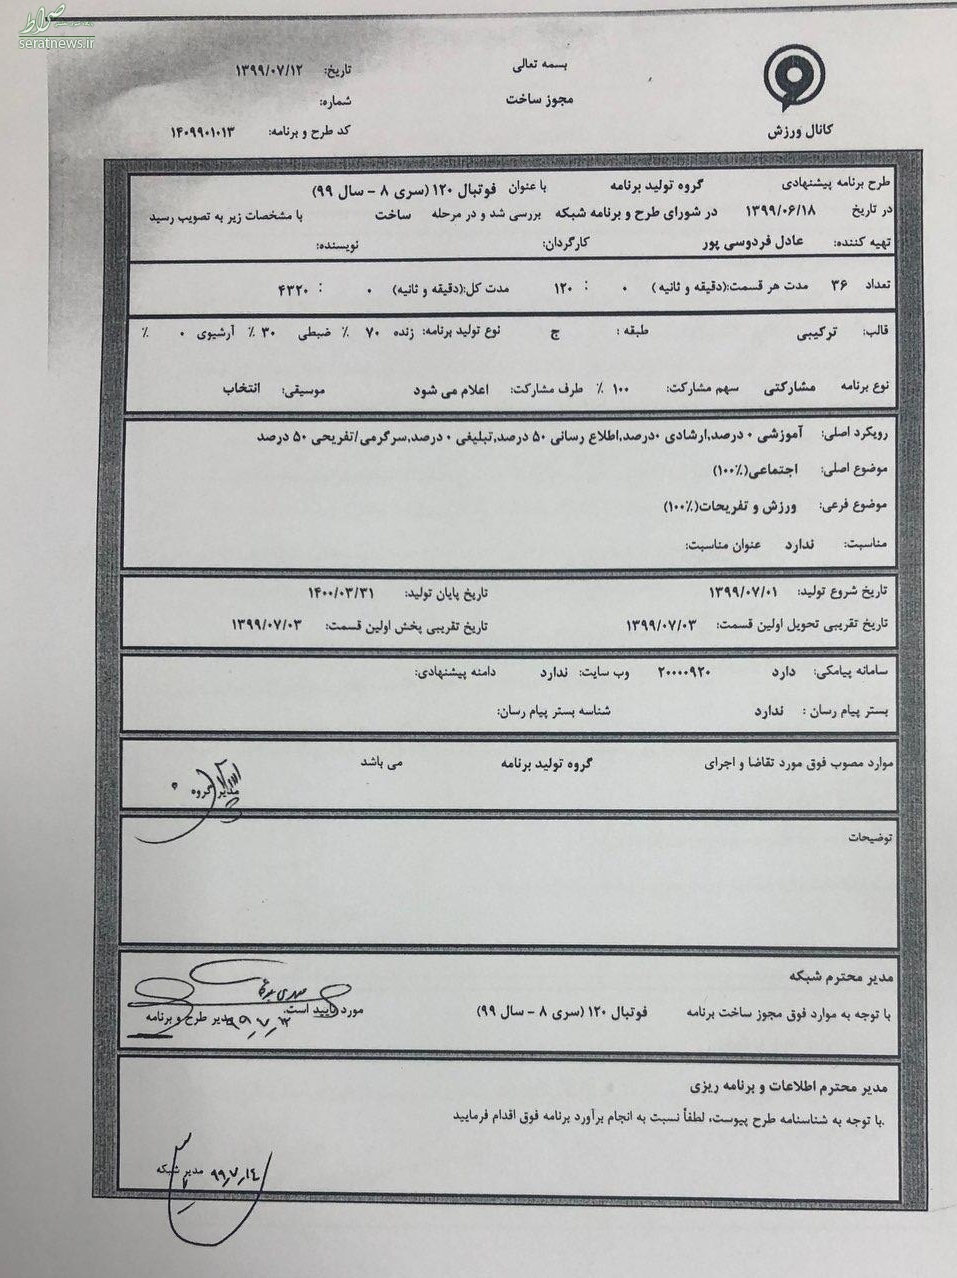 صراط
seratnews.ir
بسمه تعالی
مجوز ساخت
کانال ورزش
تاریخ: ۱۳۹۹/۰۷/۱۲
شماره:
کد طرح و برنامه: ۱۴۰۹۹۰۱۰۱۳
طرح برنامه پیشنهادی گروه تولید برنامه با عنوان فوتبال ۱۲۰ (سری ۸ - سال ۹۹)
در تاریخ ۱۳۹۹/۰۶/۱۸ در شورای طرح و برنامه شبکه بررسی شد و در مرحله ساخت با مشخصات زیر به تصویب رسید
تهیه کننده: عادل فردوسی پور کارگردان: نویسنده:
تعداد ۳۶ مدت هر قسمت:(دقیقه و ثانیه) ۰ : ۱۲۰ مدت کل:(دقیقه و ثانیه) ۰ : ۴۳۲۰
قالب: ترکیبی طبقه : ج نوع تولید برنامه: زنده ۷۰ ٪ ضبطی ۳۰ ٪ آرشیوی ۰ ٪
نوع برنامه مشارکتی سهم مشارکت: ۱۰۰ ٪ طرف مشارکت: اعلام می شود موسیقی: انتخاب
رویکرد اصلی: آموزشی ۰ درصد,ارشادی ۰درصد,اطلاع رسانی ۵۰ درصد,تبلیغی ۰ درصد,سرگرمی/تفریحی ۵۰ درصد
موضوع اصلی: اجتماعی(۱۰۰٪)
موضوع فرعی: ورزش و تفریحات(۱۰۰٪)
مناسبت: ندارد عنوان مناسبت:
تاریخ شروع تولید: ۱۳۹۹/۰۷/۰۱ تاریخ پایان تولید: ۱۴۰۰/۰۳/۳۱
تاریخ تقریبی تحویل اولین قسمت: ۱۳۹۹/۰۷/۰۳ تاریخ تقریبی پخش اولین قسمت: ۱۳۹۹/۰۷/۰۳
سامانه پیامکی: دارد ۲۰۰۰۰۹۲۰ وب سایت: ندارد دامنه پیشنهادی:
بستر پیام رسان : ندارد شناسه بستر پیام رسان:
موارد مصوب فوق مورد تقاضا و اجرای گروه تولید برنامه می باشد
مدیر گروه
توضیحات
مدیر محترم شبکه
با توجه به موارد فوق مجوز ساخت برنامه فوتبال ۱۲۰ (سری ۸ - سال ۹۹) مورد تایید است.
مدیر طرح و برنامه
مدیر محترم اطلاعات و برنامه ریزی
با توجه به شناسنامه طرح پیوست، لطفاً نسبت به انجام برآورد برنامه فوق اقدام فرمایید.
مدیر شبکه ۹۹٫۷٫۱۴